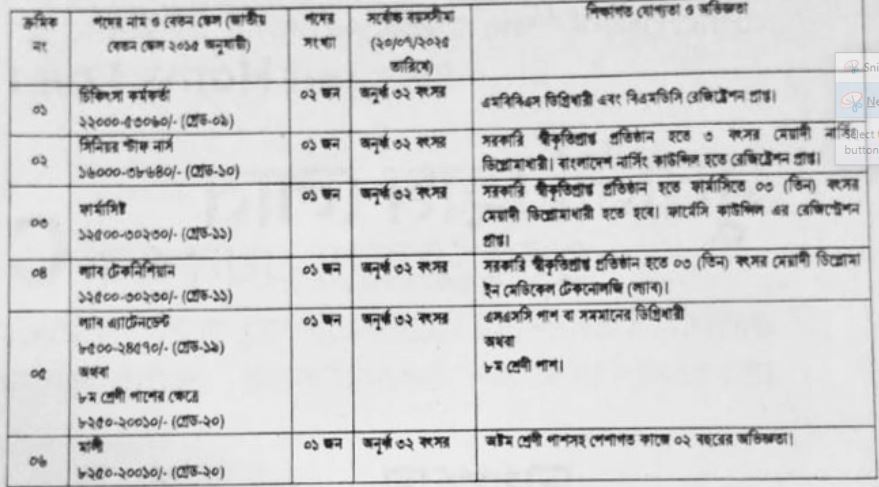 ক্রমিক নং
পদের নাম ও বেতন স্কেল (জাতীয় বেতন স্কেল ২০১৫ অনুযায়ী)
পদের সংখ্যা
সর্বোচ্চ বয়সসীমা (২০/০৭/২০২৫ তারিখে)
শিক্ষাগত যোগ্যতা ও অভিজ্ঞতা
০১
চিকিৎসা কর্মকর্তা
২২০০০-৫৩০৬০/- (গ্রেড-০৯)
০২ জন
অনূর্ধ্ব ৩২ বৎসর
এমবিবিএস ডিগ্রিধারী এবং বিএমডিসি রেজিষ্ট্রেশন প্রাপ্ত।
০২
সিনিয়র স্টাফ নার্স
১৬০০০-৩৮৬৪০/- (গ্রেড-১০)
০১ জন
অনূর্ধ্ব ৩২ বৎসর
সরকারি স্বীকৃতিপ্রাপ্ত প্রতিষ্ঠান হতে ৩ বৎসর মেয়াদী নার্সিং
ডিপ্লোমাধারী। বাংলাদেশ নার্সিং কাউন্সিল হতে রেজিষ্ট্রেশন প্রাপ্ত।
০৩
ফার্মাসিষ্ট
১২৫০০-৩০২৩০/- (গ্রেড-১১)
০১ জন
অনূর্ধ্ব ৩২ বৎসর
সরকারি স্বীকৃতিপ্রাপ্ত প্রতিষ্ঠান হতে ফার্মাসিতে ০৩ (তিন) বৎসর
মেয়াদী ডিপ্লোমাধারী হতে হবে। ফার্মেসি কাউন্সিল এর রেজিষ্ট্রেশন
প্রাপ্ত।
০৪
ল্যাব টেকনিশিয়ান
১২৫০০-৩০২৩০/- (গ্রেড-১১)
০১ জন
অনূর্ধ্ব ৩২ বৎসর
সরকারি স্বীকৃতিপ্রাপ্ত প্রতিষ্ঠান হতে ০৩ (তিন) বৎসর মেয়াদী ডিপ্লোমা
ইন মেডিকেল টেকনোলজি (ল্যাব)।
০৫
ল্যাব এ্যাটেনডেন্ট
৮৫০০-২৪৫৭০/- (গ্রেড-১৯)
অথবা
৮ম শ্রেণী পাশের ক্ষেত্রে
৮২৫০-২০০১০/- (গ্রেড-২০)
০১ জন
অনূর্ধ্ব ৩২ বৎসর
এসএসসি পাশ বা সমমানের ডিগ্রিধারী
অথবা
৮ম শ্রেণী পাশ।
০৬
মালী
৮২৫০-২০০১০/- (গ্রেড-২০)
০১ জন
অনূর্ধ্ব ৩২ বৎসর
অষ্টম শ্রেণী পাশসহ পেশাগত কাজে ০২ বছরের অভিজ্ঞতা।
Sni
Ne
button